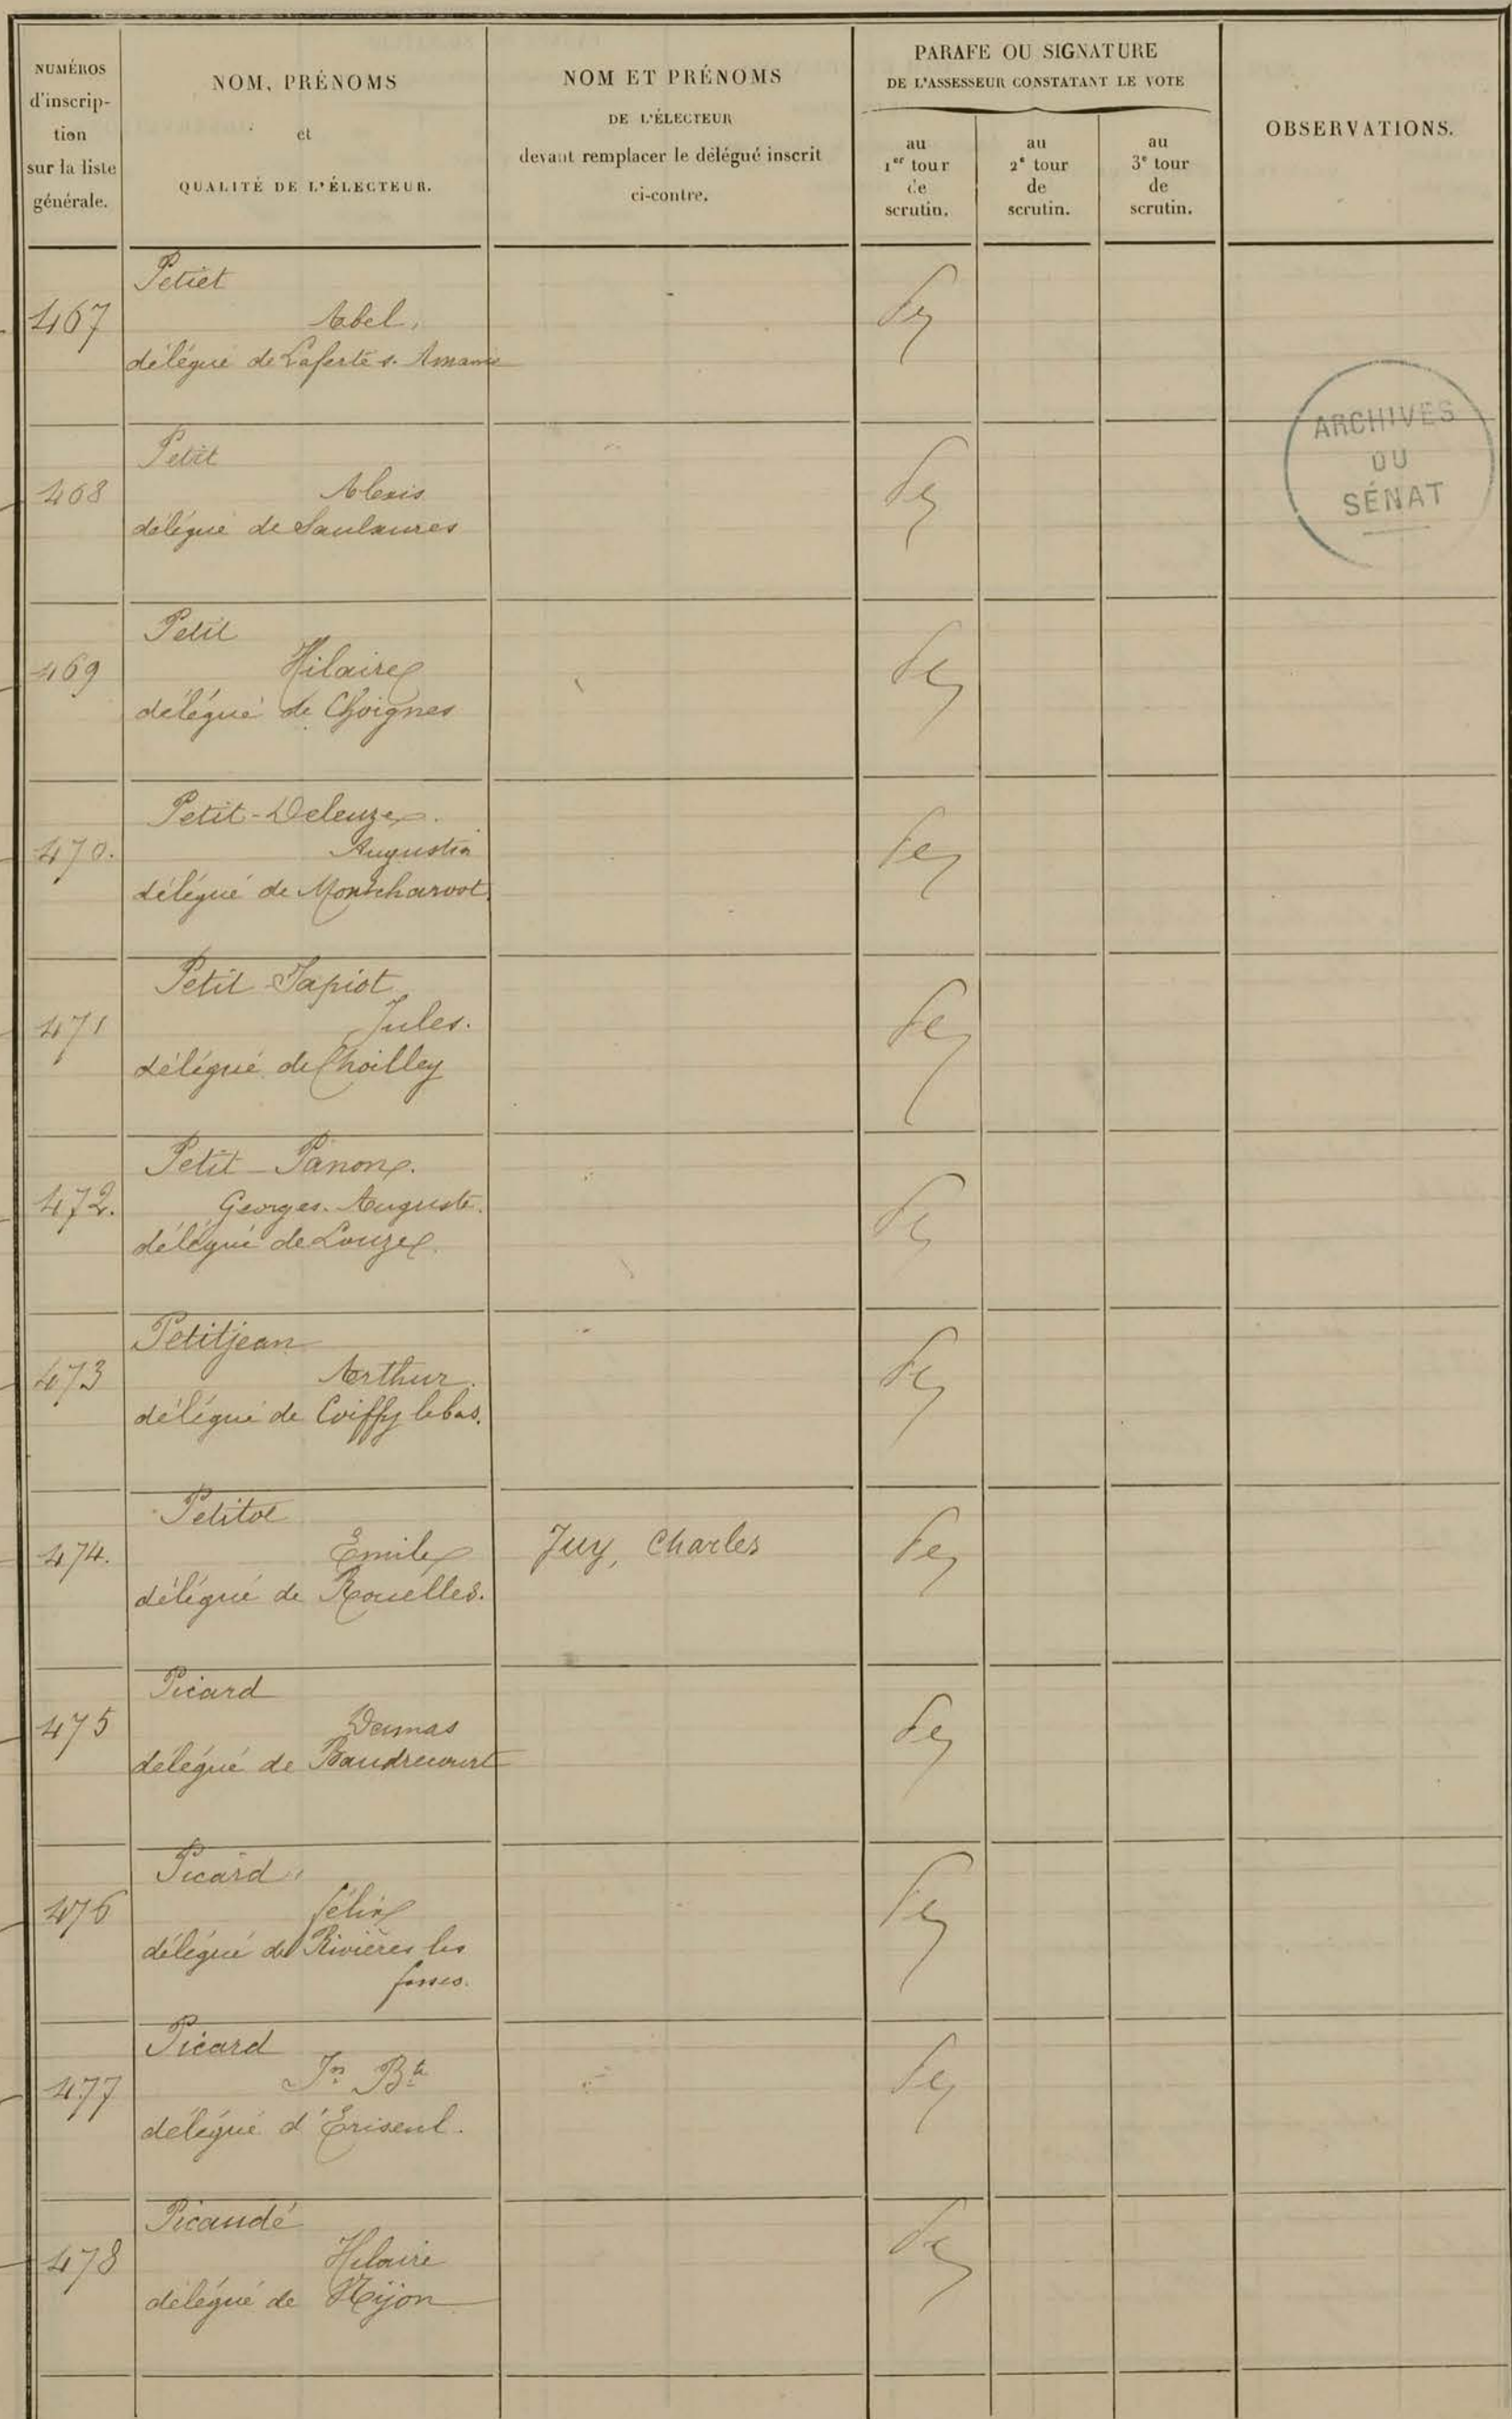 NUMÉROS
d'inscrip-
tion
sur la liste
générale.
NOM, PRÉNOMS
et
QUALITÉ DE L'ÉLECTEUR.
NOM ET PRÉNOMS
DE L'ÉLECTEUR
devant remplacer le délégué inscrit
ci-contre.
PARAFE OU SIGNATURE
DE L'ASSESSEUR CONSTATANT LE VOTE
au
1er tour
de
scrutin.
au
2e tour
de
scrutin.
au
3e tour
de
scrutin.
OBSERVATIONS.
ARCHIVES
DU
SÉNAT
Petiet
467
Abel,
délégué de Laferté s. Amance
Petit
468
Alexis
délégué de Saulxures
Petit
469
Hilaire
délégué de Choignes
Petit-Deleuze.
470.
Augustin
délégué de Montcharvot
Petit-Sapiot
471
Jules.
délégué de Choilley
Petit-Panon.
472.
Georges. Auguste.
délégué de Louze
Petitjean
473
Arthur.
délégué de Coiffy lebas.
Petitot
474.
Emile
Juy, Charles
délégué de Rouelles.
Picard
475
Damas
délégué de Baudrecourt
Picard
476
Félix
délégué de Rivières les
fosses.
Picard
477
Jn Bte
délégué d'Eriseul.
Picaudé
478
Hilaire
délégué de Nijon